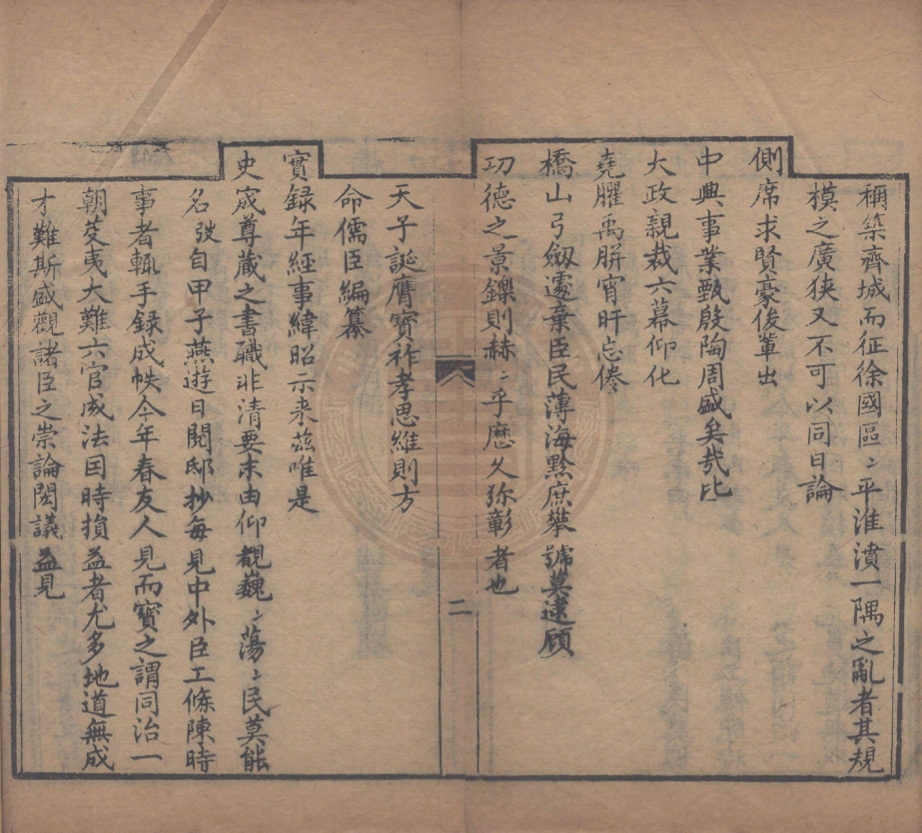 稱築齊城而征徐國區〻平淮濆一隅之亂者其規
模之廣狹又不可以同日論
側席求賢豪俊輩出
中興事業甄殷陶周盛矣哉比
大政親裁六幕仰化
堯臞禹胼宵旰忘倦
橋山弓劔遽棄臣民薄海黔庶攀號莫逮顧
功德之景鑠則赫〻乎歷久弥彰者也
二
天子誕膺寶祚孝思維則方
命儒臣編纂
實録年經事緯昭示来兹唯是
史宬尊藏之書職非清要末由仰覩巍〻蕩〻民莫能
名弢自甲子燕遊日閱邸抄每見中外臣工條陳時
事者輒手録成帙今年春友人見而寶之謂同治一
朝芟夷大難六官成法因時損益者尤多地道無成
才難斯盛觀諸臣之崇論閎議益見